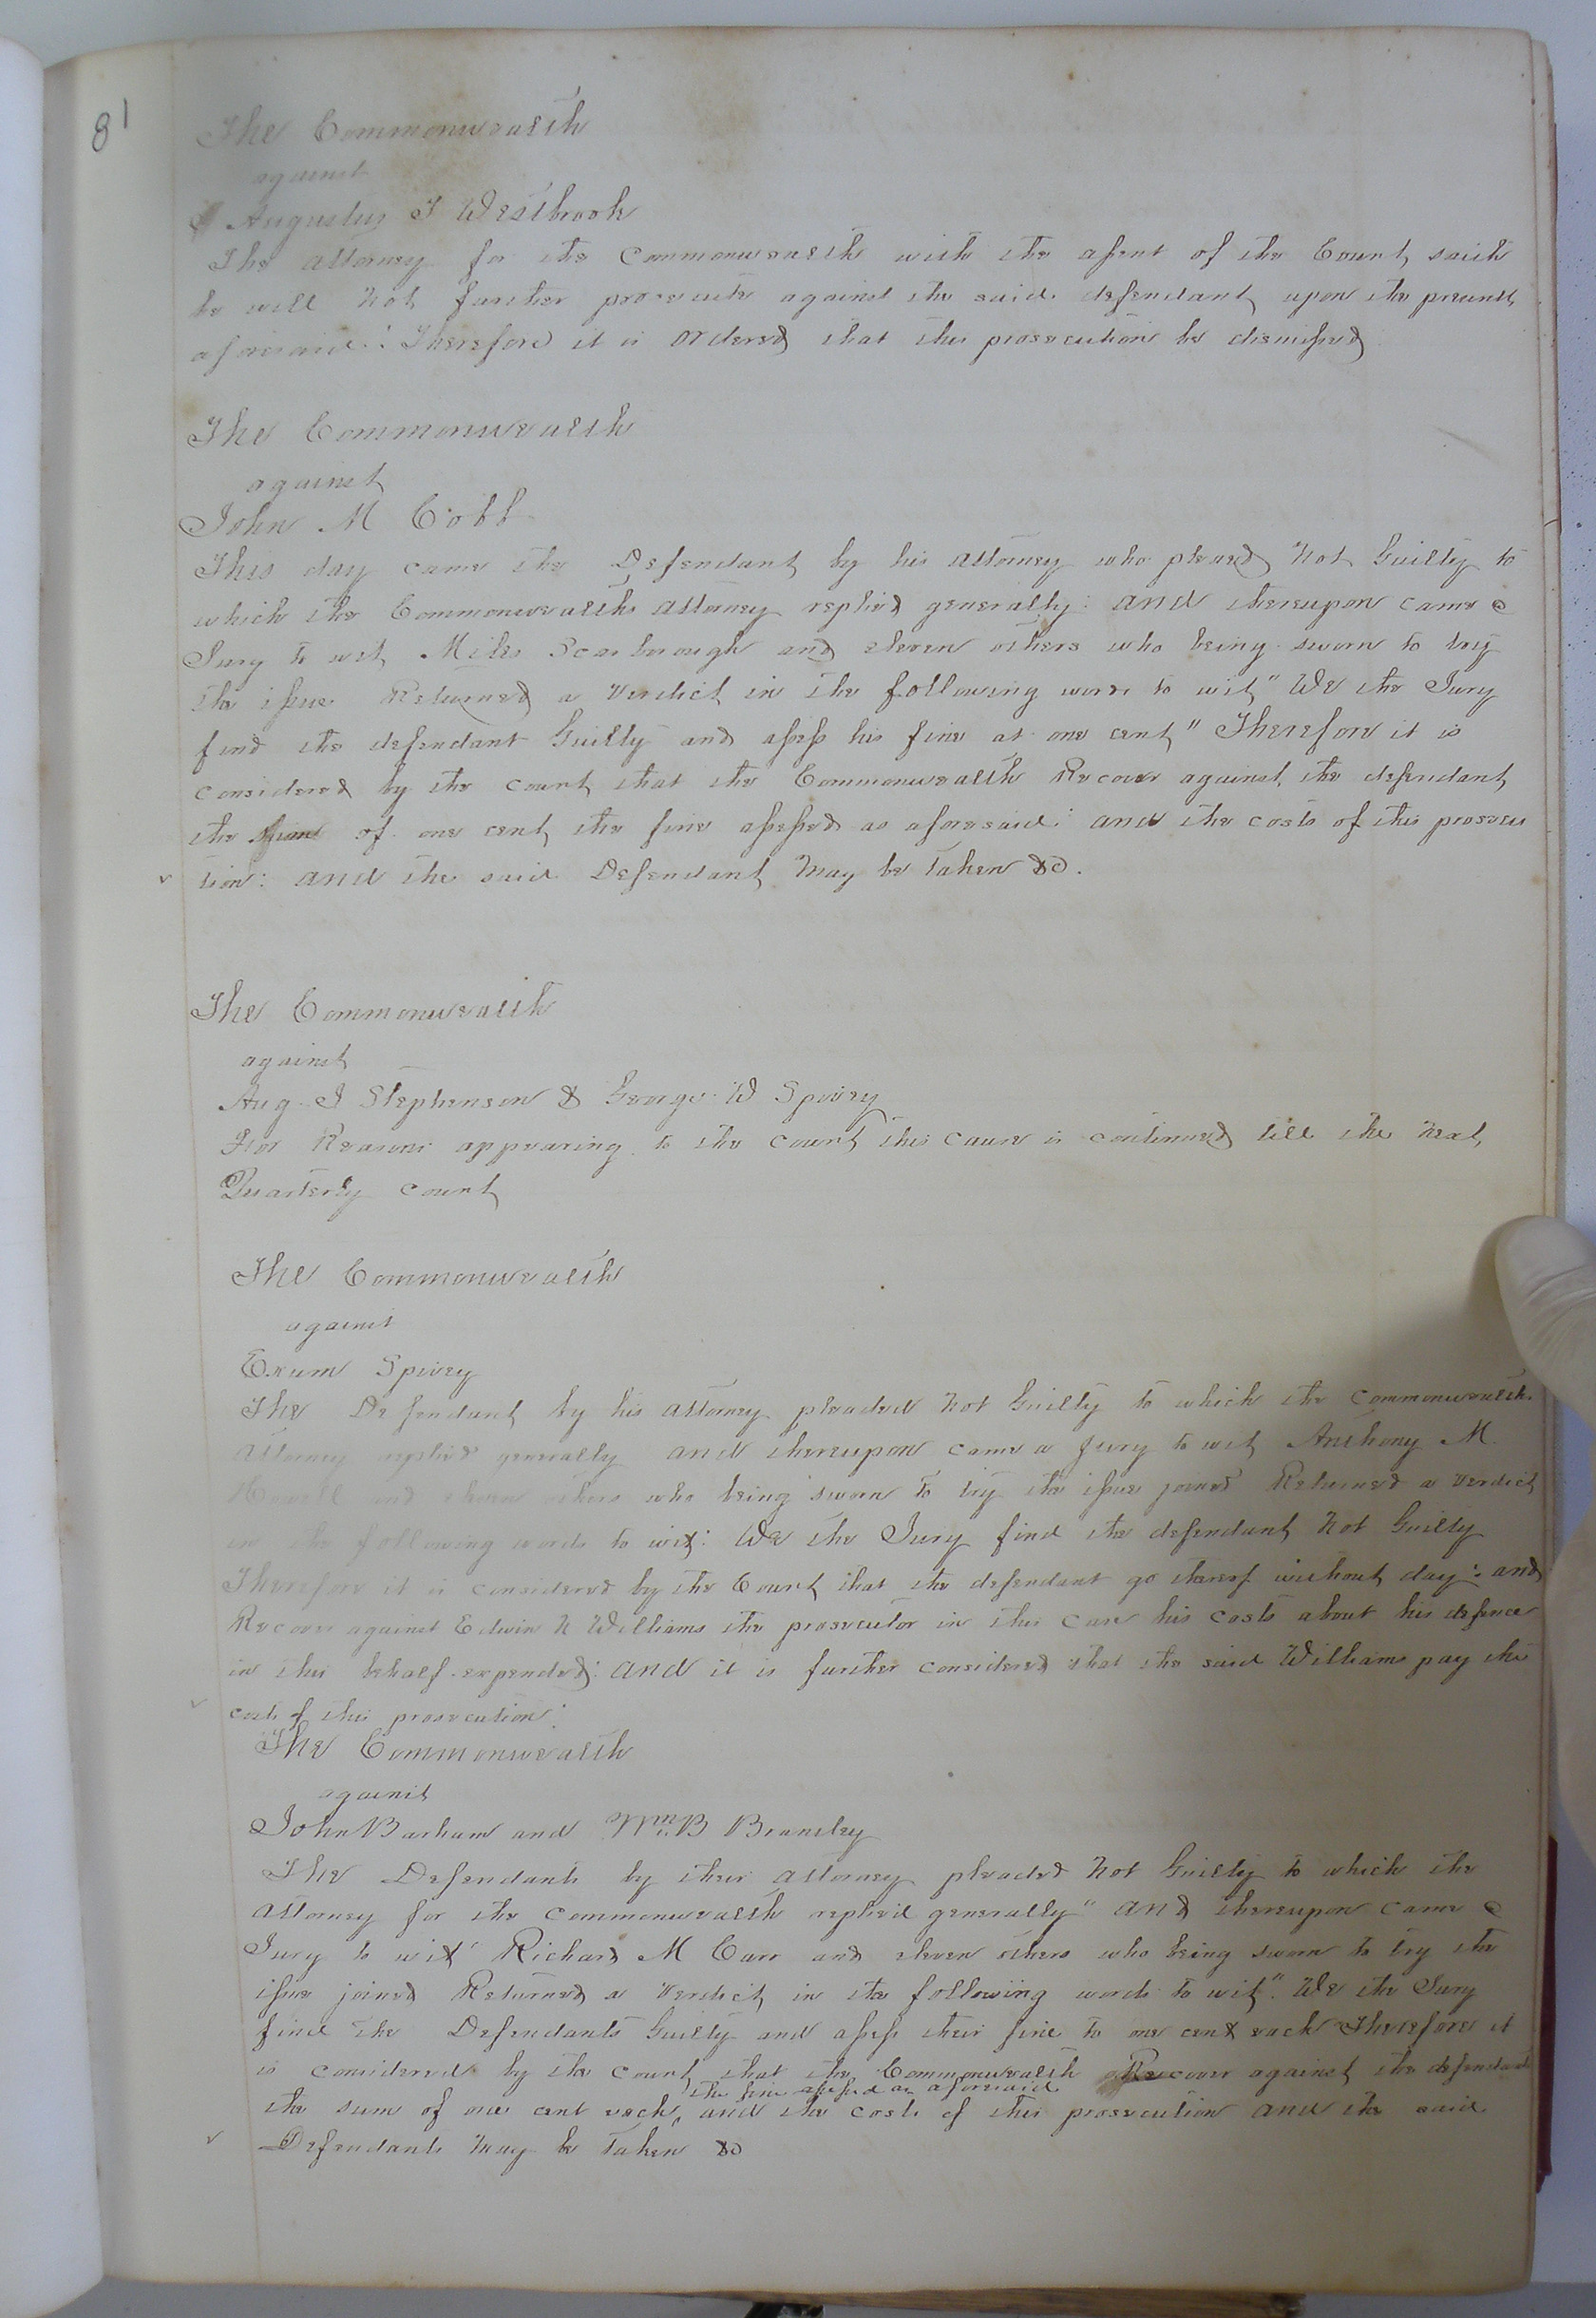 81
The Commonwealth
against
Augustus J Westbrook
The attorney for the Commonwealth with the assent of the Court, saith
he will not further prosecute against the said defendant, upon the presentt
aforesaid: Therefore it is ordered that this prosecution be dismissed
The Commonwealth
against
John M Cobb
This day came the Defendant by his attorney who plead Not Guilty to
which the Commonwealths attorney replied generally: and thereupon came a
Jury to wit, Miles Scarborough and eleven others who being sworn to try
the issue Returned a verdict in the following words to wit "We the Jury
find the defendant Guilty and assess his fine at one cent" Therefore it is
considered by the court that the Commonwealth Recover against the defendant
the of one cent, the fine assessed as aforesaid: and the costs of this prosecu
tion: and the said Defendant may be taken &c.
The Commonwealth
against
Aug. J Stephenson & George W Spivey
For Reasons appearing to the court this cause is continued till the next
Quarterly court
The Commonwealth
against
Exum Spivey
The Defendant by his attorney pleaded not Guilty to which the commonwealth
attorney replied generally and thereupon came a jury to wit Anthony M
Howell and eleven others who being sworn to try the issue joined Returned a verdict
in the following words to wit: We the Jury find the defendant not Guilty
Therefore it is considered by the Court that the defendant go thereof without day: and
Recover against Edwin N Williams the prosecutor in this case his costs about his defence
in this behalf expended: and it is further considered that the said Williams pay the
costs of this prosecution:
The Commonwealth
against
John Barham and Wm B Brantley
The Defendants by their attorney pleaded not Guilty to which the
attorney for the commonwealth replied generally" and thereupon came a
Jury to wit Richard M Carr and eleven others who being sworn to try the
issue joined Returned a verdict in the following words to wit" We the Jury
find the Defendants Guilty and assess their fine to one cent each Therefore it
is considered by the court that the Commonwealth Recover against the defendant
the fine assessed as aforesaid
the sum of one cent each, and the costs of this prosecution and the said
Defendants may be taken &c